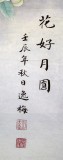 花好月圓
壬辰年秋日逸梅